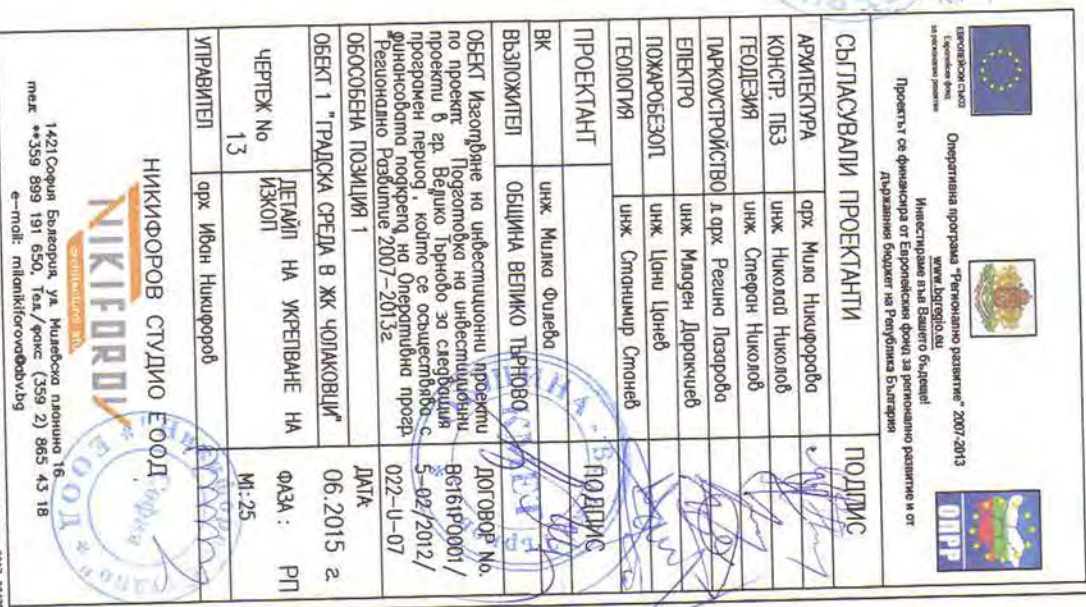 ЕВРОПЕЙСКИ СЪЮЗ
Европейски фонд
за регионално развитие
Оперативна програма "Регионално развитие" 2007-2013
www.bgregio.eu
Инвестираме във Вашето бъдеще!
Проектът се финансира от Европейския фонд за регионално развитие и от
държавния бюджет на Република България
ОПРР
СЪГЛАСУВАЛИ ПРОЕКТАНТИ ПОДПИС
АРХИТЕКТУРА арх. Мила Никифорова
КОНСТР. ПБЗ инж. Николай Николов
ГЕОДЕЗИЯ инж. Стефан Николов
ПАРКОУСТРОЙСТВО л.арх. Регина Лазарова
ЕЛЕКТРО инж. Младен Даракчиев
ПОЖАРОБЕЗОП. инж. Цани Цанев
ГЕОЛОГИЯ инж. Станимир Станев
ПРОЕКТАНТ ПОДПИС
ВК инж. Милка Филева
ВЪЗЛОЖИТЕЛ ОБЩИНА ВЕЛИКО ТЪРНОВО
ОБЕКТ Изготвяне на инвестиционни проекти
по проект: "Подготовка на инвестиционни
проекти в гр. Велико Търново за следващия
програмен период, който се осъществява с
финансовата подкрепа на Оперативна прогр.
"Регионално Развитие 2007-2013г.
ДОГОВОР No.
BG161PO001/
5-02/2012/
022-U-07
ОБОСОБЕНА ПОЗИЦИЯ 1
ОБЕКТ 1 "ГРАДСКА СРЕДА В ЖК ЧОЛАКОВЦИ"
ДАТА:
06.2015 г.
ЧЕРТЕЖ No
13
ДЕТАЙЛ НА УКРЕПВАНЕ НА
ИЗКОП
ФАЗА: РП
М1:25
УПРАВИТЕЛ арх. Иван Никифоров
НИКИФОРОВ СТУДИО ЕООД
NIKIFOROV
architectural studio
1421 София България, ул. Милевска планина 16
тел: **359 899 191 650, Тел./факс (359 2) 865 43 18
e-mail: milanikiforova@abv.bg